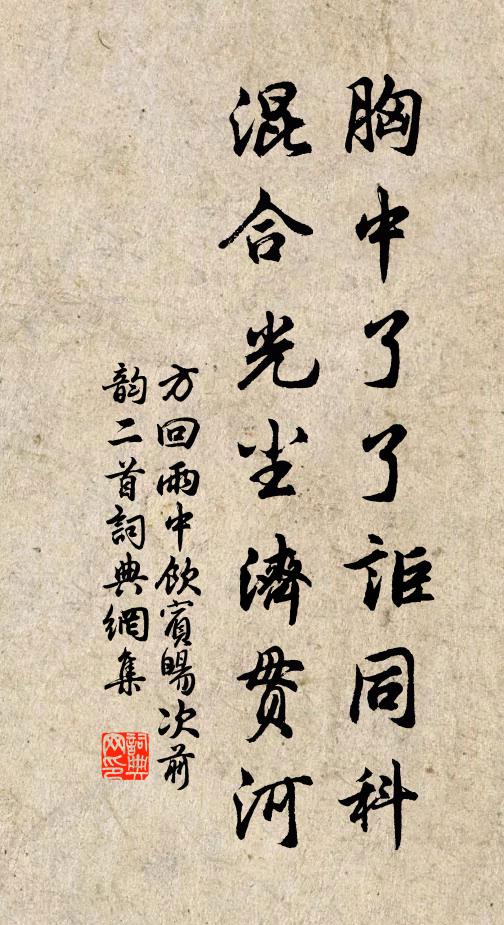 胸中了了詎同科
混合光尘濟貫河
方回雨中飲賓暘次前
韵二首詞典網集
詞典网印